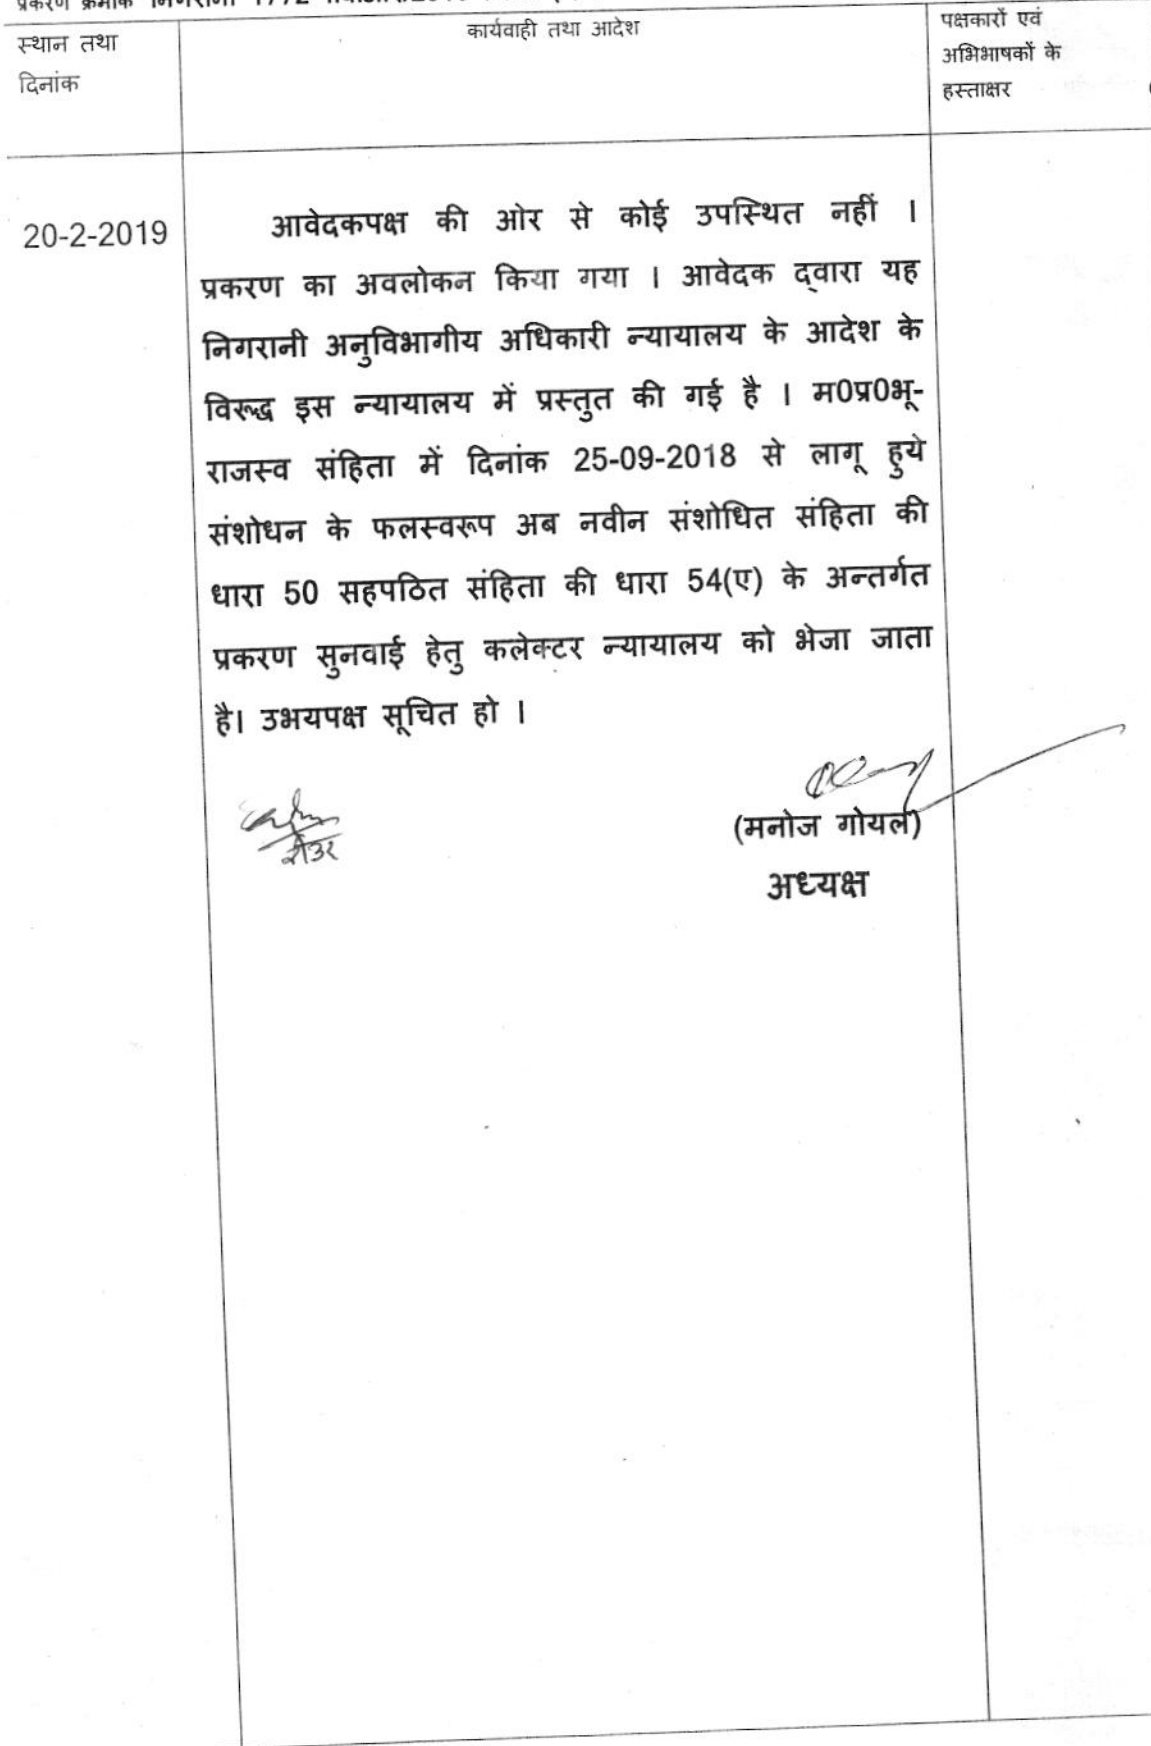 प्रकरण क्रमांक निगरानी 1772
स्थान तथा
दिनांक
कार्यवाही तथा आदेश
पक्षकारों एवं
अभिभाषकों के
हस्ताक्षर
20-2-2019
आवेदकपक्ष की ओर से कोई उपस्थित नहीं ।
प्रकरण का अवलोकन किया गया । आवेदक द्वारा यह
निगरानी अनुविभागीय अधिकारी न्यायालय के आदेश के
विरूद्ध इस न्यायालय में प्रस्तुत की गई है । म0प्र0भू-
राजस्व संहिता में दिनांक 25-09-2018 से लागू हुये
संशोधन के फलस्वरूप अब नवीन संशोधित संहिता की
धारा 50 सहपठित संहिता की धारा 54(ए) के अन्तर्गत
प्रकरण सुनवाई हेतु कलेक्टर न्यायालय को भेजा जाता
है। उभयपक्ष सूचित हो ।
(मनोज गोयल)
अध्यक्ष